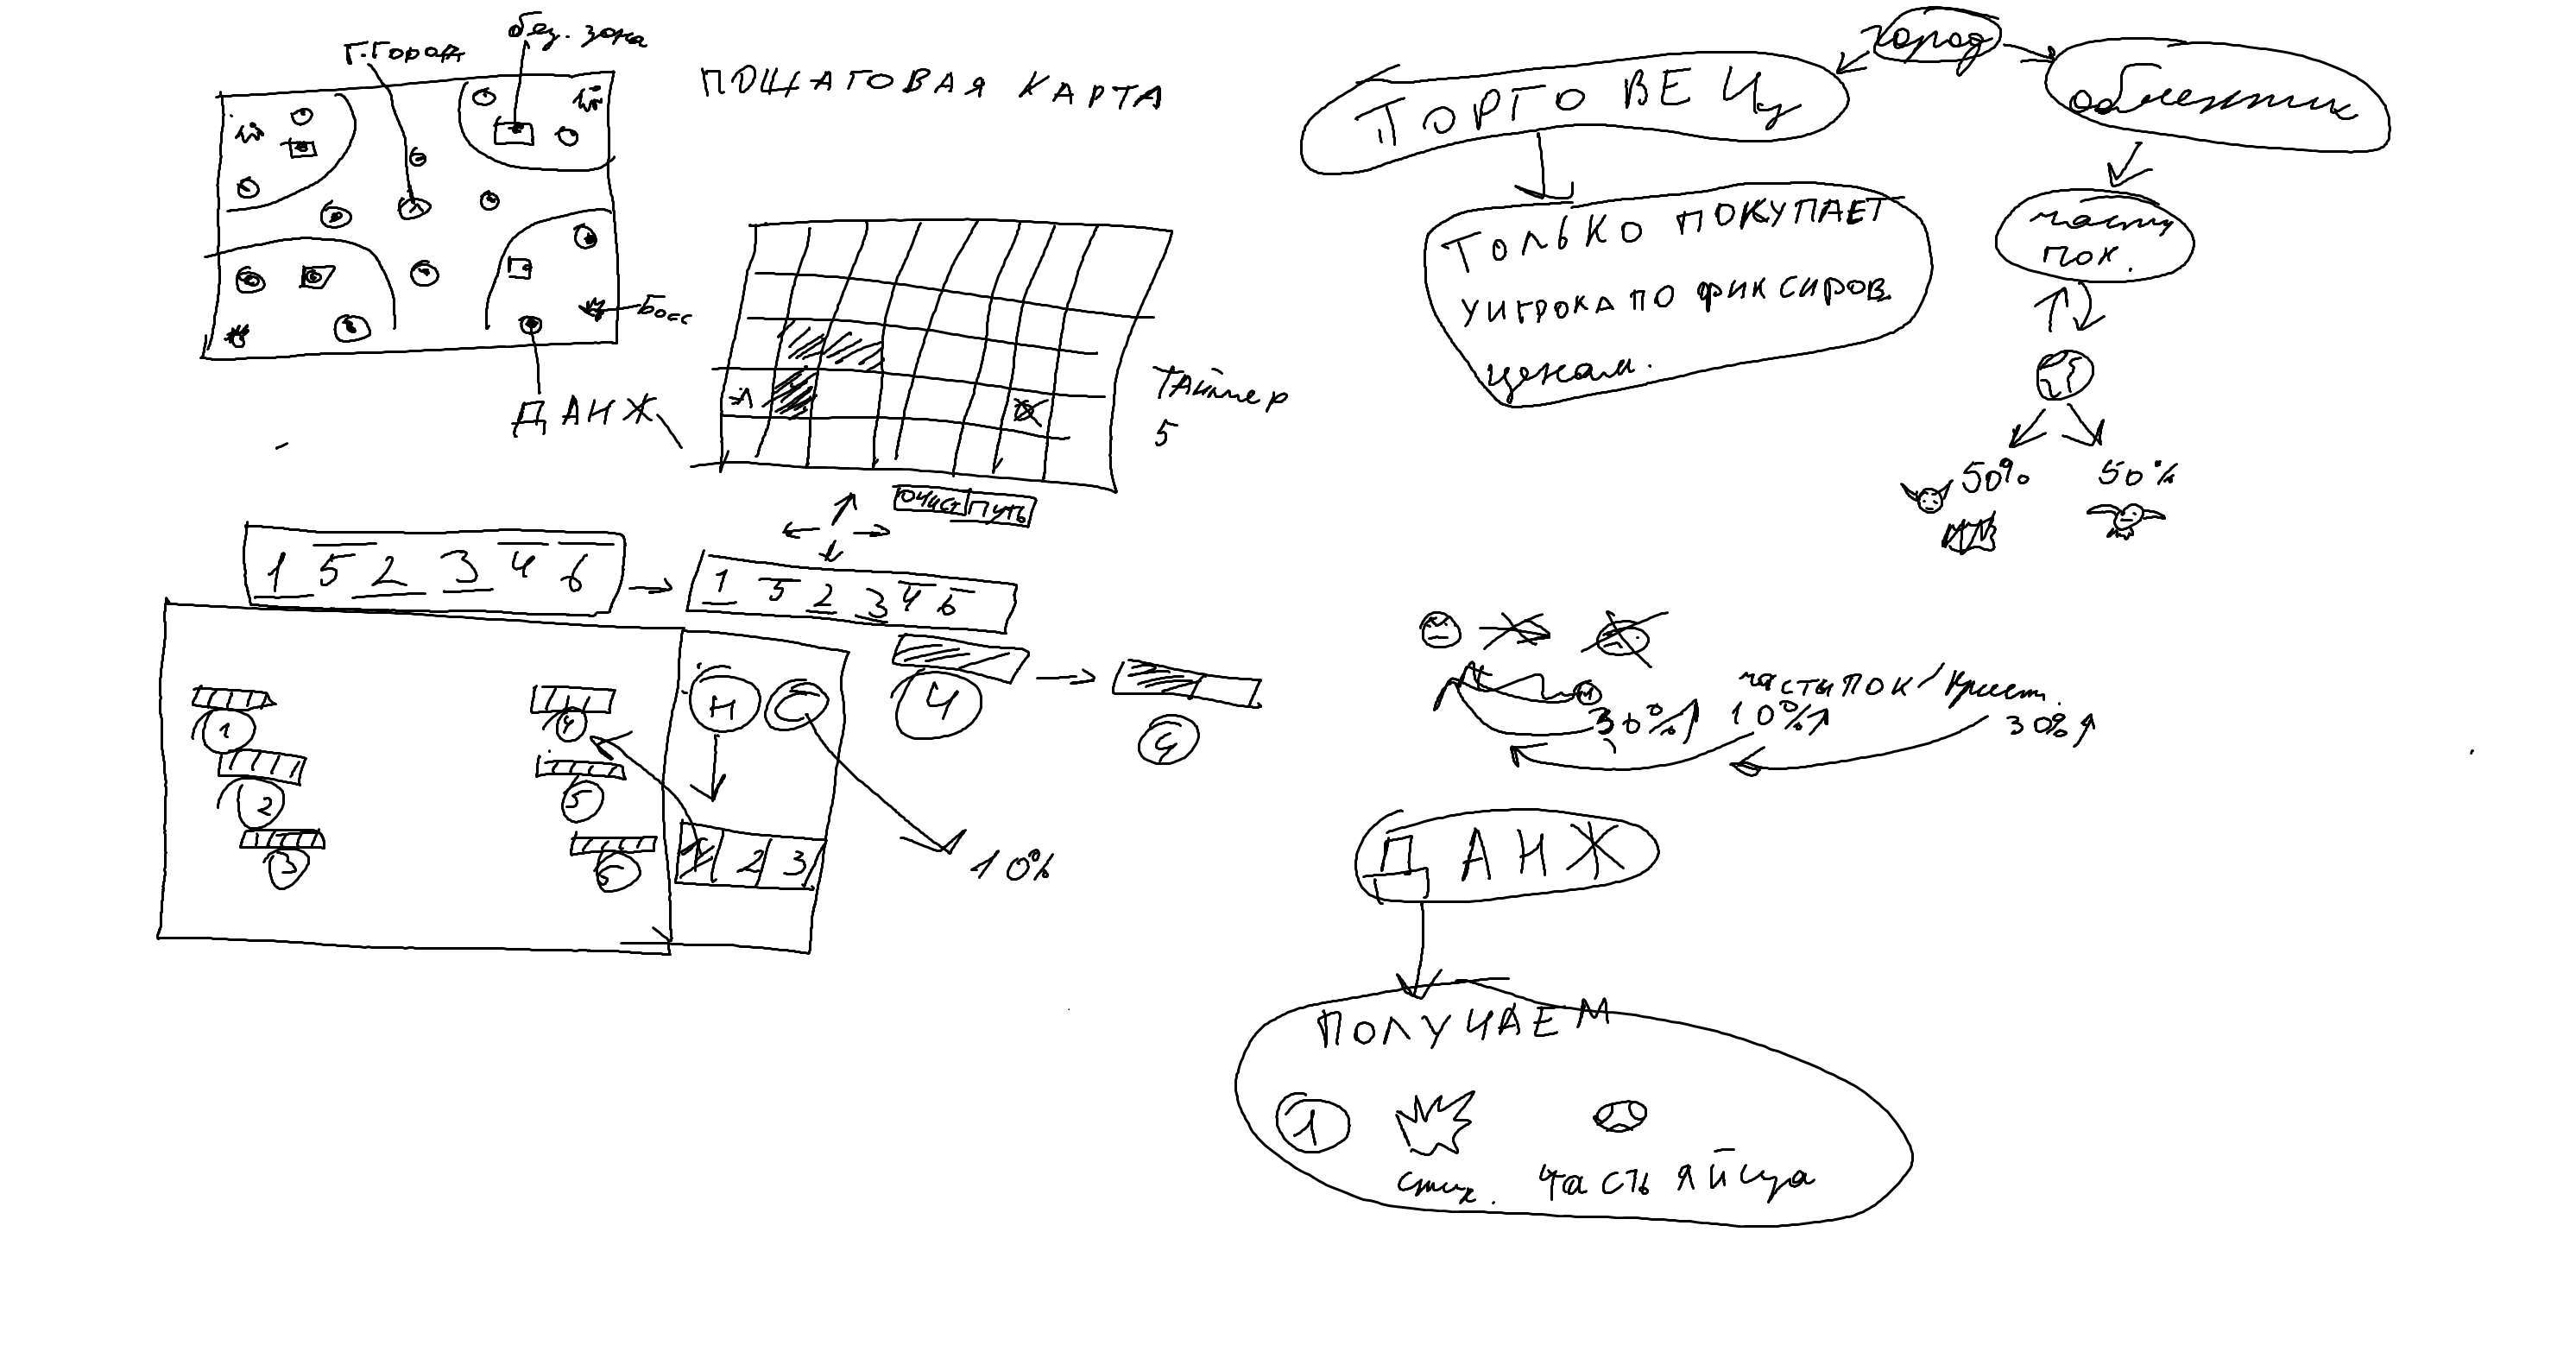 Г.Город
без. зона
ПОШАГОВАЯ КАРТА
Босс
ДАНЖ
Таймер
5
ОЧИСТ ПУТЬ
1 5 2 3 4 6
1 5 2 3 4 6
1
2
3
4
5
6
Н
С
1 2 3
10%
4
город
ТОРГОВЕЦ
обменник
ТОЛЬКО ПОКУПАЕТ
У ИГРОКА ПО ФИКСИРОВ
ценам.
части
пок.
50%
50%
части ПОК / Крист.
30% 10% 30%
ДАНЖ
ПОЛУЧАЕМ
1
часть яйца